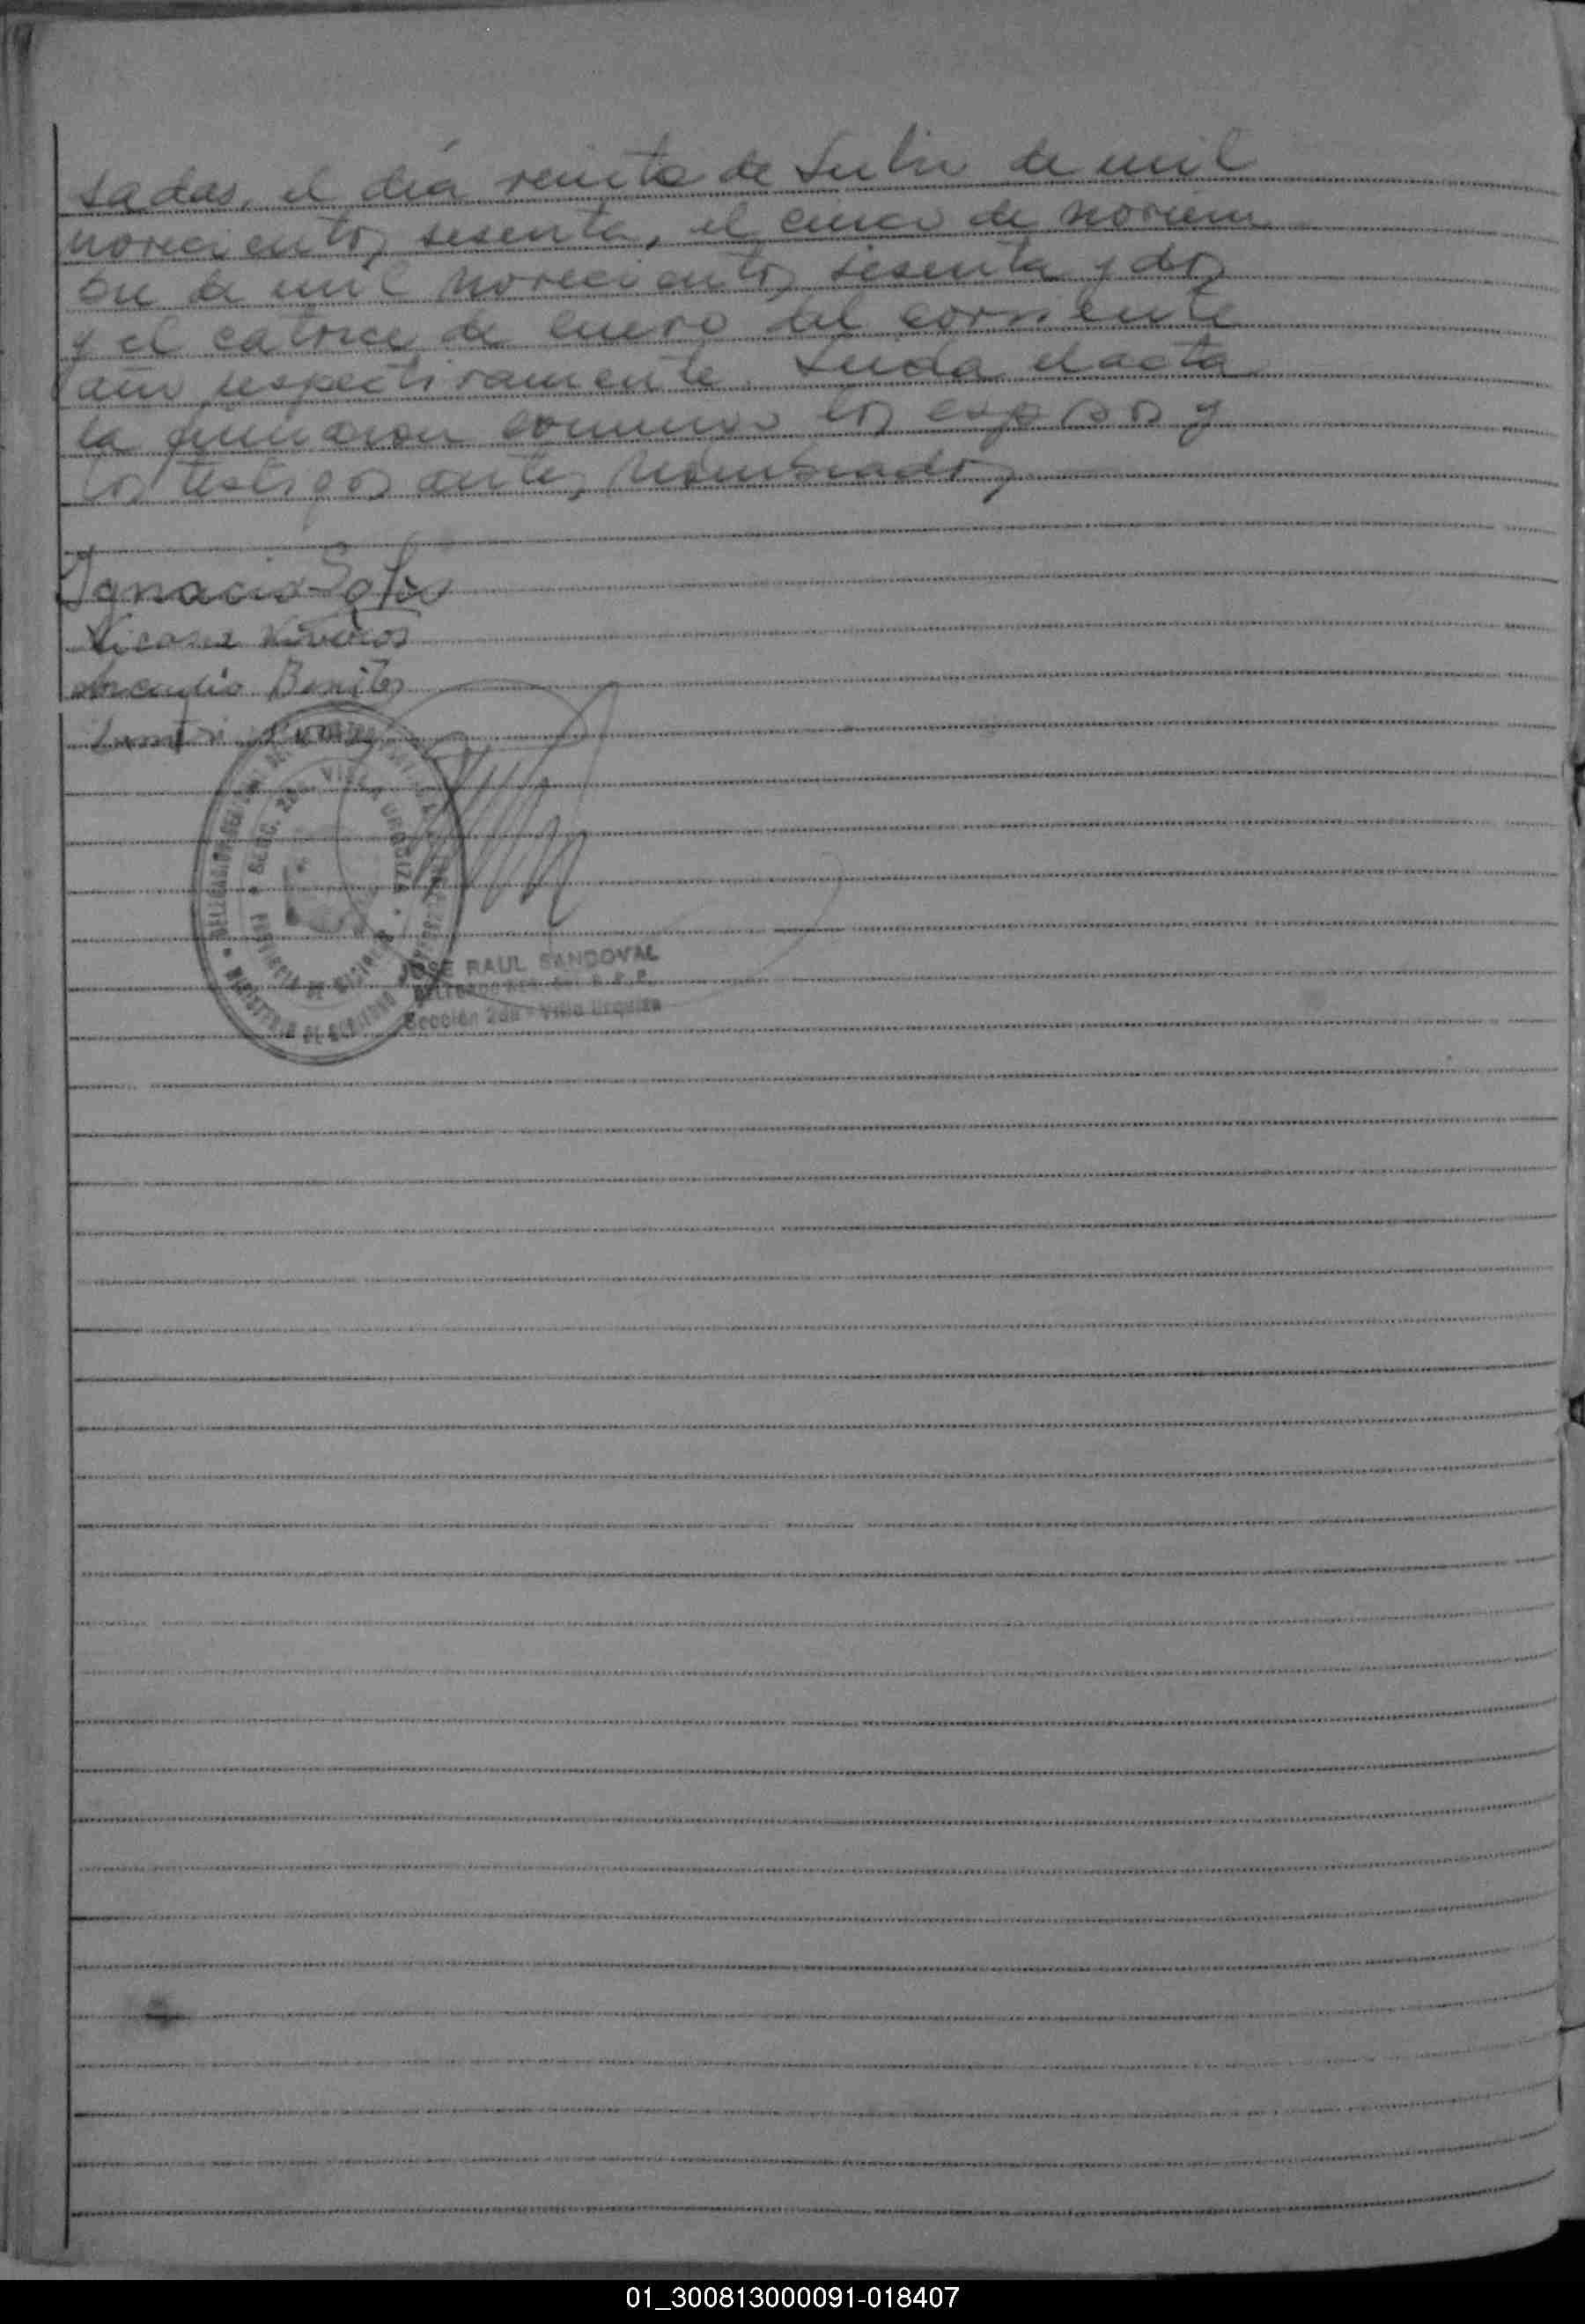 sadas, el día veinte de Julio de mil
novecientos sesenta, el cinco de noviem
bre de mil novecientos sesenta y dos
y el catorce de enero del corriente
año respectivamente. Leida el acta
la firmaron conmigo los esposos y
los testigos antes nombrados
Ignacio Soto
Viveros
Benitez
SECC. 2da. VILLA URQUIZA
JOSE RAUL SANDOVAL
Sección 2da - Villa Urquiza
01_300813000091-018407